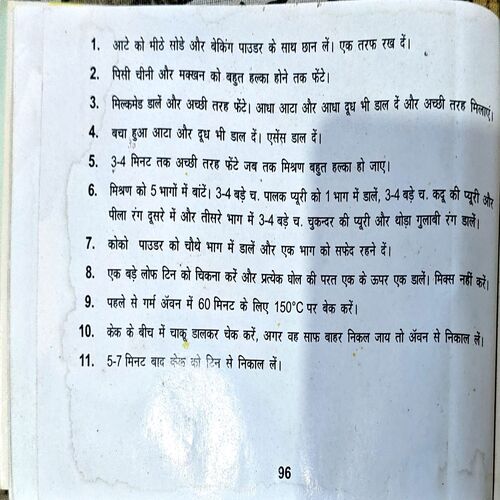 1. आटे को मीठे सोडे और बेकिंग पाउडर के साथ छान लें। एक तरफ रख दें।
2. पिसी चीनी और मक्खन को बहुत हल्का होने तक फेंटे।
3. मिल्कमेड डालें और अच्छी तरह फेंटे। आधा आटा और आधा दूध भी डाल दें और अच्छी तरह मिलाएं।
4. बचा हुआ आटा और दूध भी डाल दें। एसेंस डाल दें।
5. 3-4 मिनट तक अच्छी तरह फेंटे जब तक मिश्रण बहुत हल्का हो जाए।
6. मिश्रण को 5 भागों में बांटें। 3-4 बड़े च. पालक प्यूरी को 1 भाग में डालें, 3-4 बड़े च. कद्दू की प्यूरी और
पीला रंग दूसरे में और तीसरे भाग में 3-4 बड़े च. चुकन्दर की प्यूरी और थोड़ा गुलाबी रंग डालें।
7. कोको पाउडर को चौथे भाग में डालें और एक भाग को सफेद रहने दें।
8. एक बड़े लोफ टिन को चिकना करें और प्रत्येक घोल की परत एक के ऊपर एक डालें। मिक्स नहीं करें।
9. पहले से गर्म ॲवन में 60 मिनट के लिए 150°C पर बेक करें।
10. केक के बीच में चाकू डालकर चेक करें, अगर वह साफ बाहर निकल जाय तो ॲवन से निकाल लें।
11. 5-7 मिनट बाद केक को टिन से निकाल लें।
96